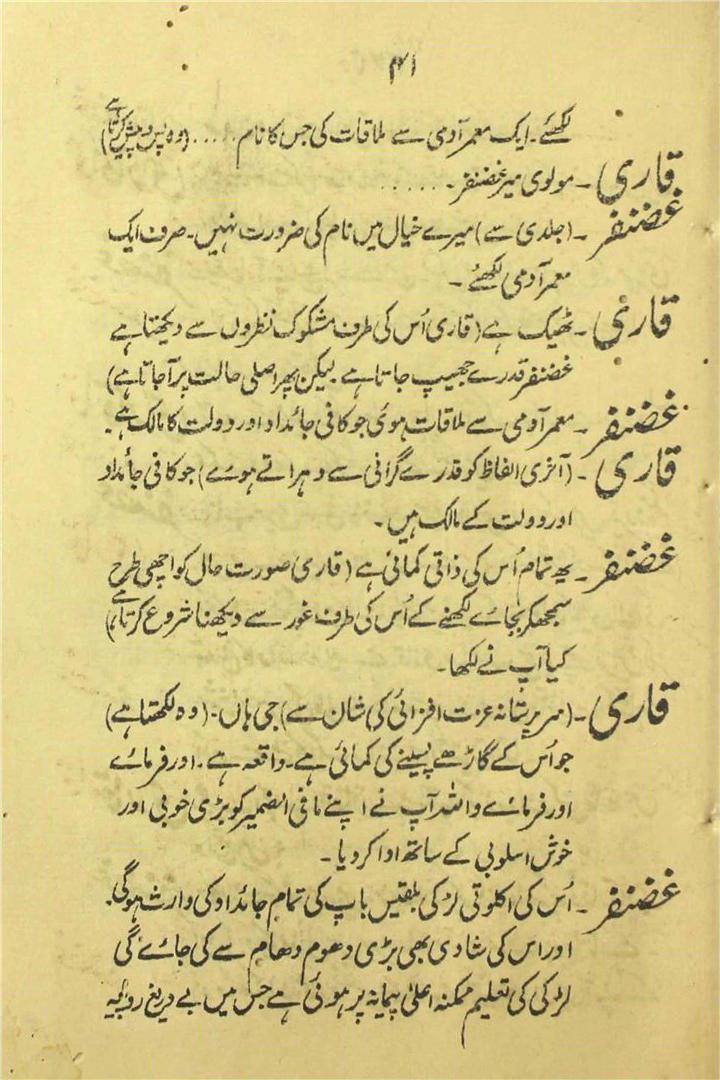 ۴۱
لکھئے۔ ایک معمر آدمی سے ملاقات کی جس کا نام ..... (وہ پس و پیش کرتا ہے)
قاری ۔ مولوی میر غضنفر۔ ......
غضنفر ۔ (جلدی سے) میرے خیال میں نام کی ضرورت نہیں۔ صرف ایک
معمر آدمی لکھئے ۔
قاری ۔ ٹھیک ہے (قاری اُس کی طرف مشکوک نظروں سے دیکھتا ہے
غضنفر قدرے جھیپ جاتا ہے لیکن پھر اصلی حالت پر آجاتا ہے)
غضنفر ۔ معمر آدمی سے ملاقات ہوئی جو کافی جائداد اور دولت کا مالک ہے۔
قاری ۔ (آخری الفاظ کو قدرے گرانی سے دہراتے ہوے) جو کافی جائداد
اور دولت کے مالک ہیں ۔
غضنفر ۔ یہ تمام اُس کی ذاتی کمائی ہے (قاری صورت حال کو اچھی طرح
سمجھکر بجاے لکھنے کے اُس کی طرف غور سے دیکھنا شروع کرتا ہے)
کیا آپ نے لکھا۔
قاری ۔ (سرپرستانہ عزت افزائی کی شان سے) جی ہاں۔ (وہ لکھتا ہے)
جو اُس کے گاڑھے پسینے کی کمائی ہے۔ واقعہ ہے۔ اور فرماے
اور فرماے واللہ آپ نے اپنے مافی الضمیر کو بڑی خوبی اور
خوش اسلوبی کے ساتھ ادا کر دیا ۔
غضنفر ۔ اُس کی اکلوتی لڑکی بلقیس باپ کی تمام جائداد کی وارث ہوگی۔
اور اس کی شادی بھی بڑی دھوم دھام سے کی جاے گی
لڑکی کی تعلیم ممکنہ اعلیٰ پیمانہ پر ہوئی ہے جس میں بے دریغ روپیہ